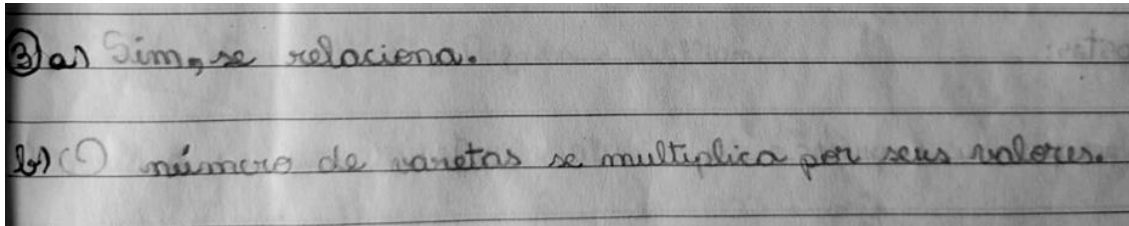 ③ a) Sim, se relaciona.
b) O número de varetas se multiplica por seus valores.